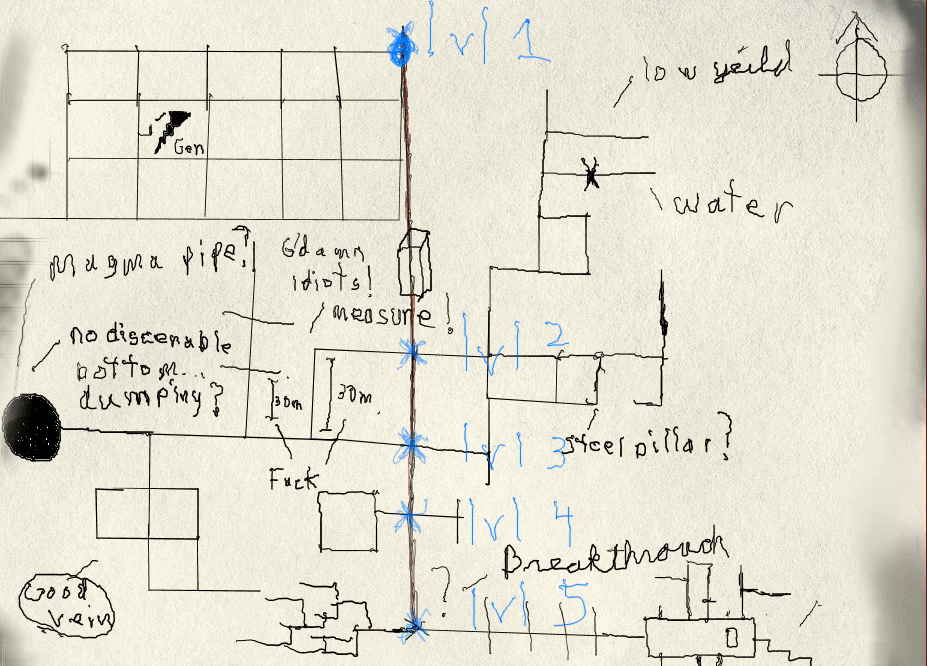 lvl 1
low yeild
Gen
water
magma pipe?
G'damn
idiots!
measure!
no discernable
bottom...
dumping?
lvl 2
30m
30m.
lvl 3
steel pillar?
Fuck
lvl 4
Breakthrough
?
lvl 5
Good
vein